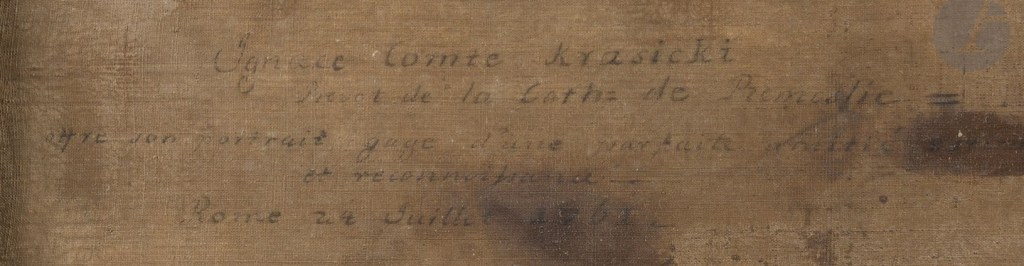 Ignace Comte Krasicki
de la Cath= de Premislie =
offre son portrait gage d'une parfaite amitié
et reconnoissance
Rome 24 Juillet 1761.